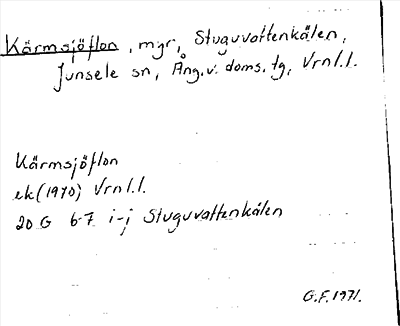 Kärmsjöflon, myr, Stuguvattenkälen,
Junsele sn, Ång.v. doms.tg, Vrnl.l.
Kärmsjöflon
ek(1970) Vrnl.l.
20 G 6-7 i-j Stuguvattenkälen
G.F.1971.